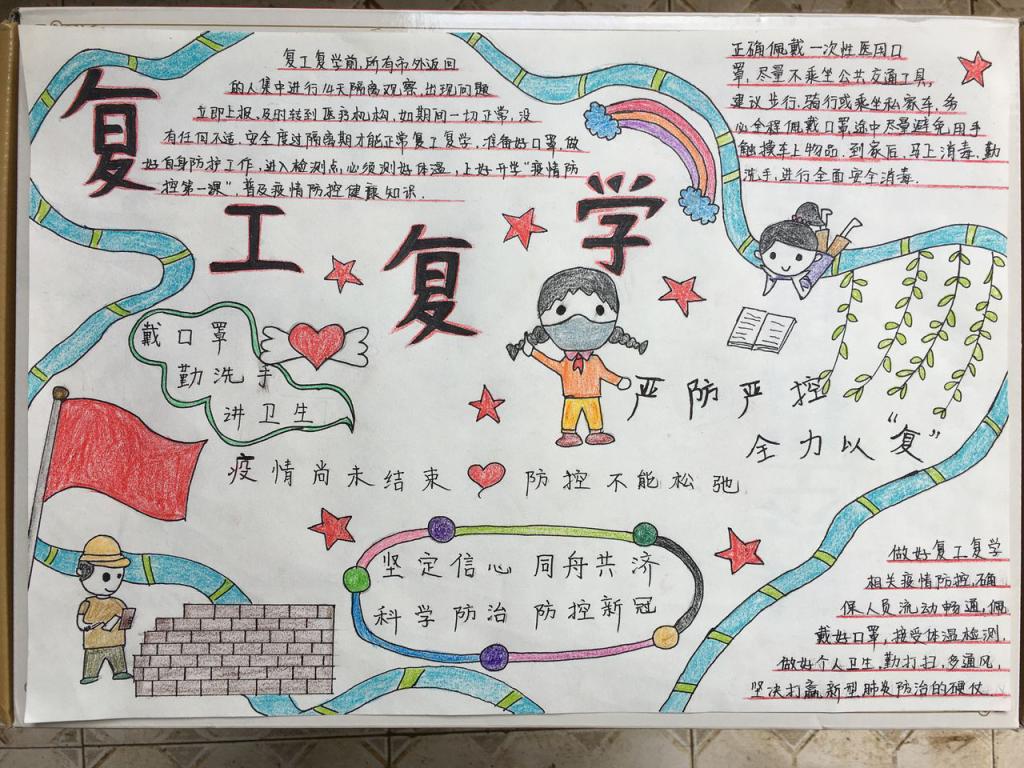 复工复学
复工复学前,所有市外返回
的人集中进行14天隔离观察,出现问题
立即上报,及时转到医疗机构,如期间一切正常,没
有任何不适,安全度过隔离期才能正常复工复学,准备好口罩,做
好自身防护工作,进入检测点,必须测好体温,上好开学“疫情防
控第一课”,普及疫情防控健康知识.
正确佩戴一次性医用口
罩,尽量不乘坐公共交通工具,
建议步行,骑行或乘坐私家车,务
必全程佩戴口罩途中尽量避免用手
触摸车上物品,到家后,马上消毒,勤
洗手,进行全面安全消毒.
戴口罩
勤洗手
讲卫生
严防严控
全力以“复”
疫情尚未结束 防控不能松弛
坚定信心 同舟共济
科学防治 防控新冠
做好复工复学
相关疫情防控,确
保人员流动畅通,佩
戴好口罩,接受体温检测,
做好个人卫生,勤打扫,多通风,
坚决打赢新型肺炎防治的硬仗